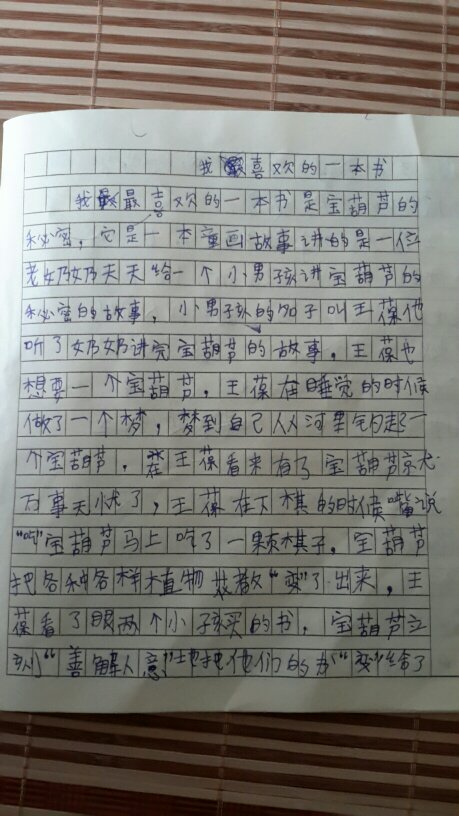 我喜欢的一本书
我最喜欢的一本书是宝葫芦的
秘密，它是一本童画故事讲的是一位
老奶奶天天给一个小男孩讲宝葫芦的
秘密的故事，小男孩的名子叫王葆他
听了奶奶讲完宝葫芦的故事，王葆也
想要一个宝葫芦，王葆在睡觉的时候
做了一个梦，梦到自己从河里钓起一
个宝葫芦，在王葆看来有了宝葫芦就
万事无忧了，王葆在下棋的时候嘴说
“吃”宝葫芦马上吃了一颗棋子，宝葫芦
把各种各样植物都“变”了出来，王
葆看了眼两个小孩买的书，宝葫芦立
刻“善解人意”地把他们的书“变”给了